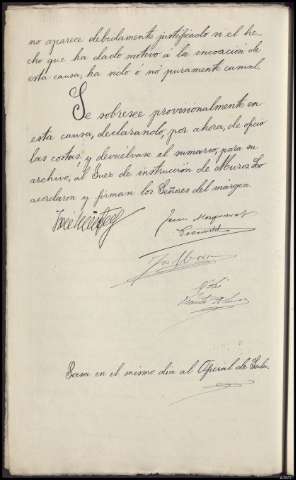 no aparece debidamente justificado si el he-
cho que ha dado motivo á la incoación de
esta causa, ha sido ó no puramente casual.
Se sobresee provisionalmente en
esta causa, declarando, por ahora, de oficio
las costas y devuélvase el sumario, para su
archivo, al Juez de instrucción de Muros. Lo
acordaron y firman los Señores del margen
en el mismo dia al